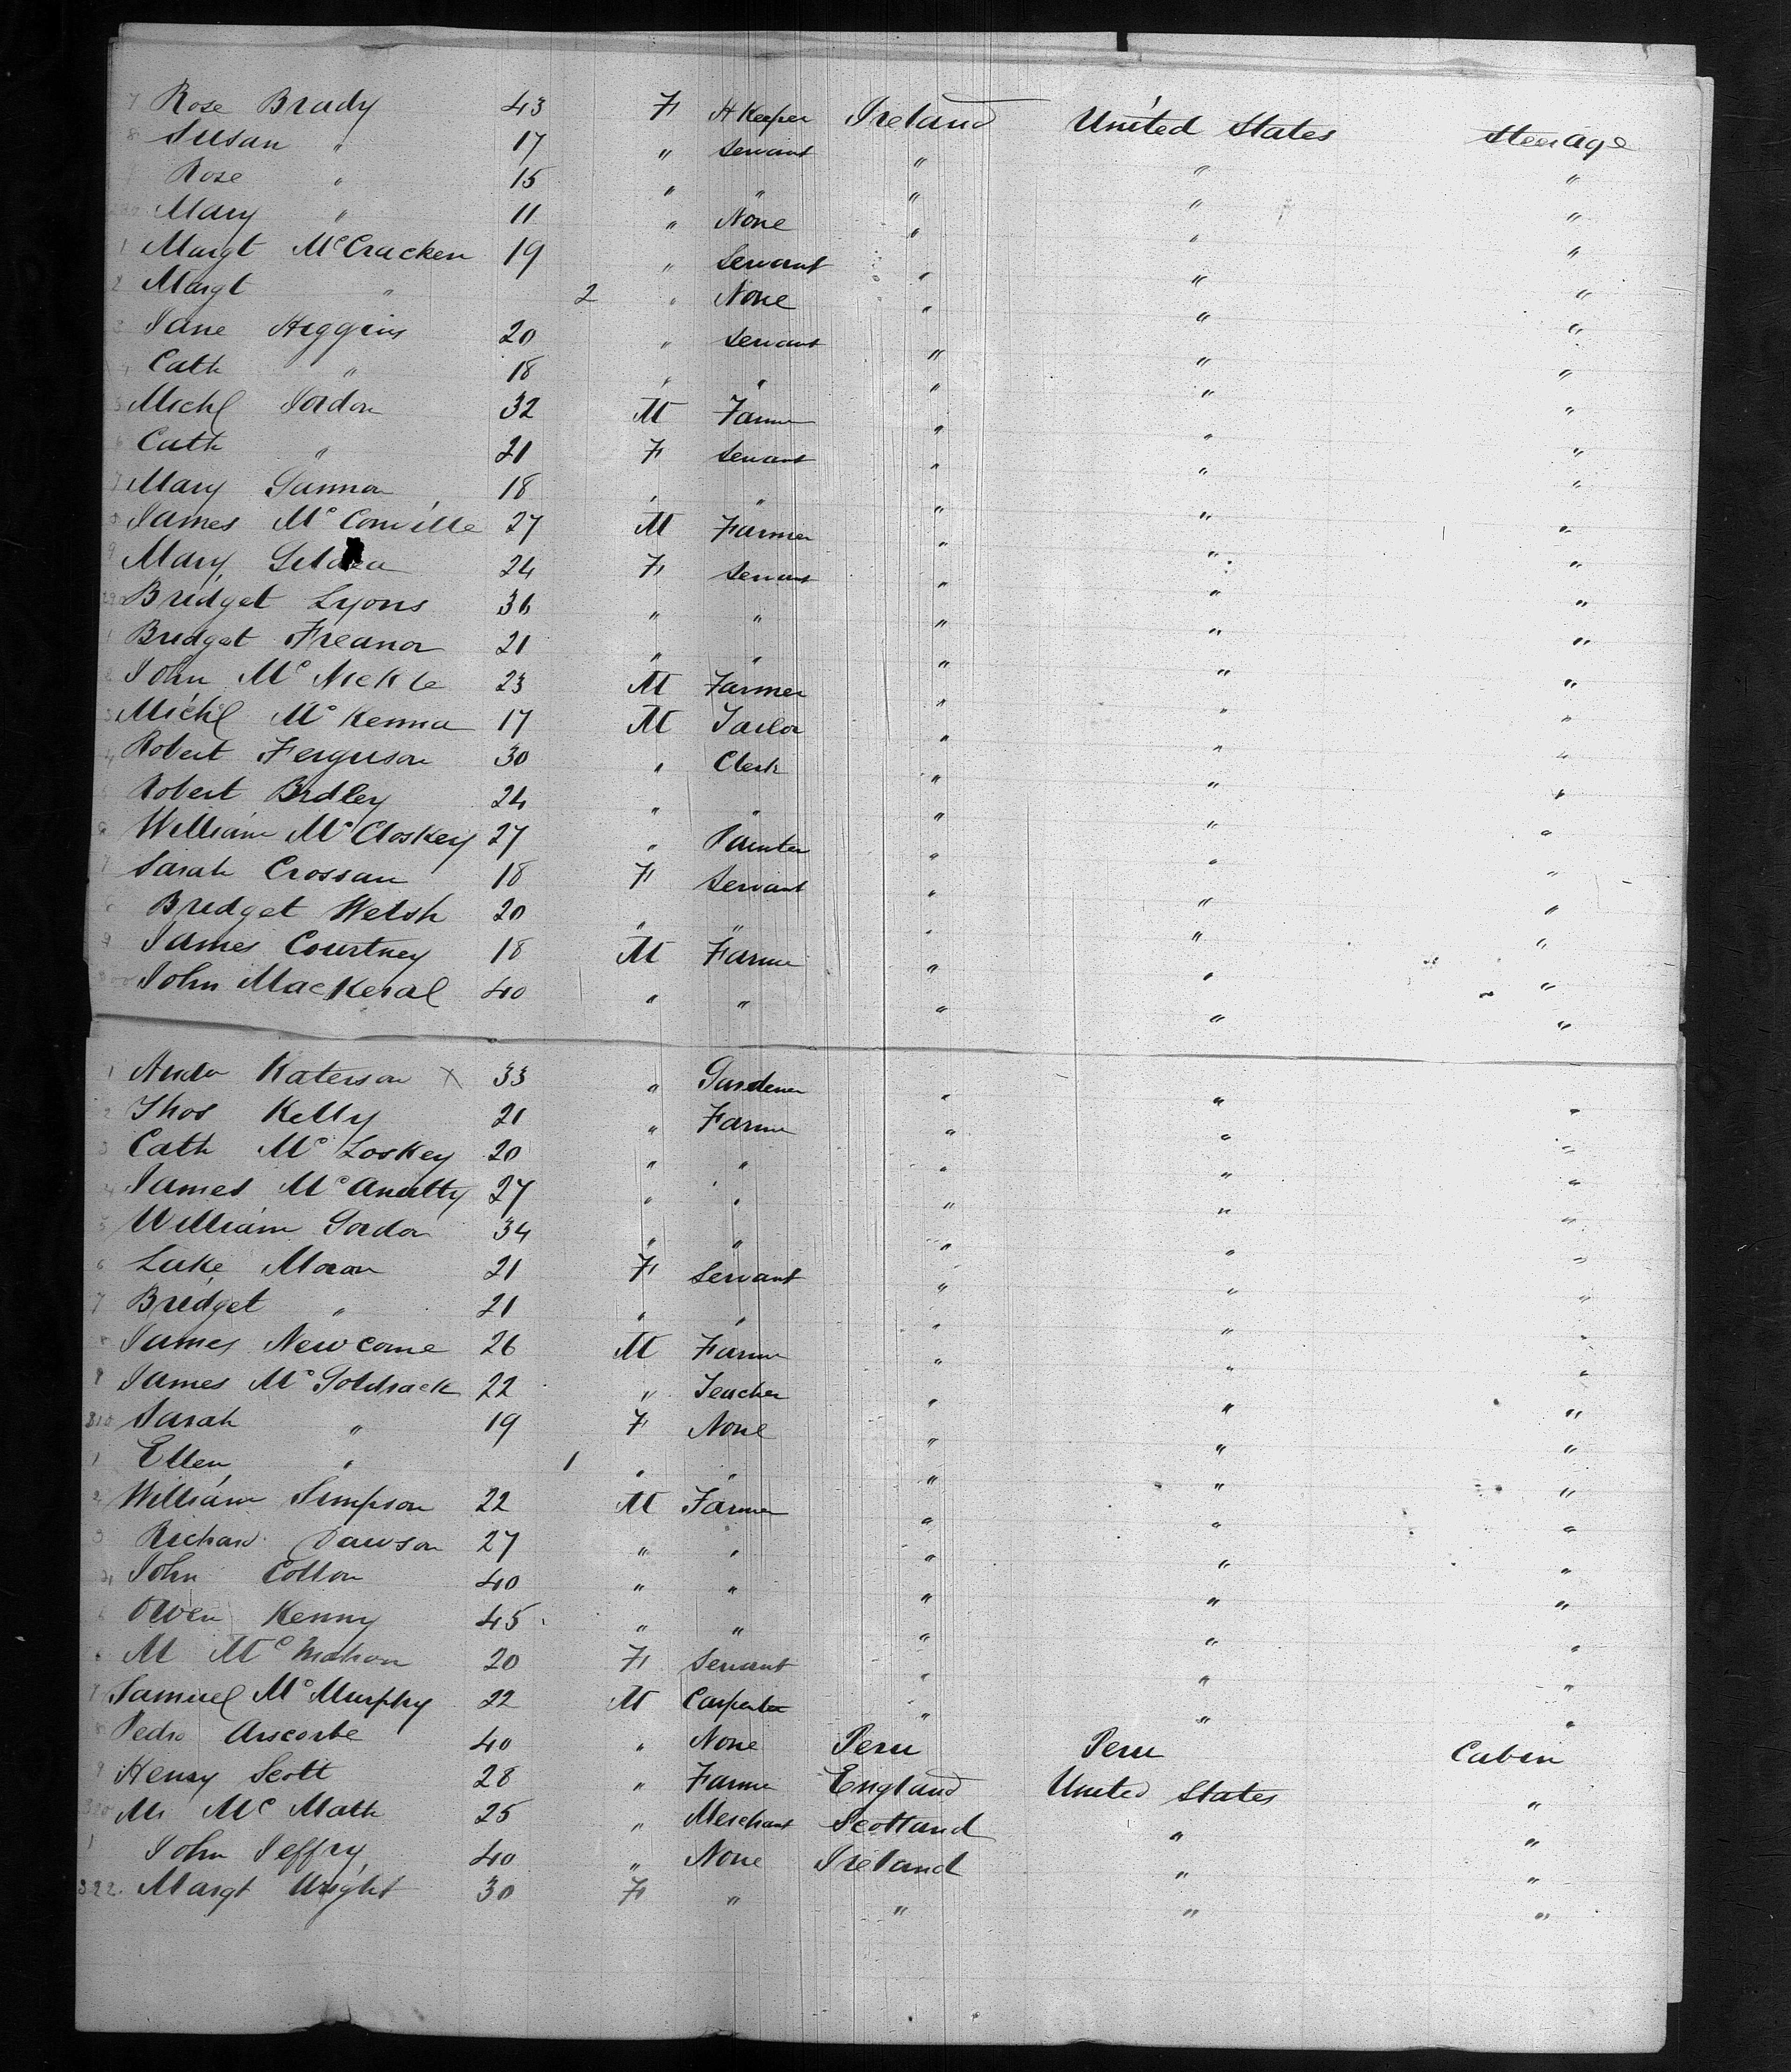 7 Rose Brady 43 F H Keeper Ireland United States Steerage
8 Susan " 17 " Servant " " "
Rose " 15 " " " " "
Mary " 11 " None " " "
1 Margt McCracken 19 " Servant " " "
2 Margt " 2 " None " " "
3 Jane Higgins 20 " Servant " " "
4 Cath " 18 " " " " "
5 Michl Jordon 32 M Farmer " " "
6 Cath " 21 F Servant " " "
7 Mary Gannon 18 " " " " "
8 James McConville 27 M Farmer " " "
9 Mary 24 F Servant " " "
290 Bridget Lyons 36 " " " " "
1 Bridget Freanor 21 " " " " "
2 John McNickle 23 M Farmer " " "
3 Michl McKenna 17 M Tailor " " "
4 Robert Ferguson 30 " Clerk " " "
5 Robert Bradley 24 " " " " "
6 William McCloskey 27 " Painter " " "
7 Sarah Crossan 18 F Servant " " "
8 Bridget Welsh 20 " " " " "
9 James Courtney 18 M Farmer " " "
300 John Mackeral 40 " " " " "
1 Andw Katerson X 33 " Gardener " " "
2 Thos Kelly 21 " Farmer " " "
3 Cath McLoskey 20 " " " " "
4 James McAnulty 27 " " " " "
5 William Gordon 34 " " " " "
6 Luke Moran 21 F Servant " " "
7 Bridget " 21 " " " " "
8 James Newcome 26 M Farmer " " "
9 James McGoldrack 22 " Teacher " " "
310 Sarah " 19 F None " " "
1 Ellen " 1 " " " " "
2 William Simpson 22 M Farmer " " "
3 Richard Dawson 27 " " " " "
4 John Colton 40 " " " " "
5 Owen Kenny 45 " " " " "
6 M McMahon 20 F Servant " " "
7 Samuel McMurphy 22 M Carpenter " " "
8 Pedro Ascorbe 40 " None Peru Peru Cabin
9 Henry Scott 28 " Farmer England United States "
320 Mr McMath 25 " Merchant Scotland " "
1 John Jeffry 40 " None Ireland " "
322. Margt Wright 30 F " " " "